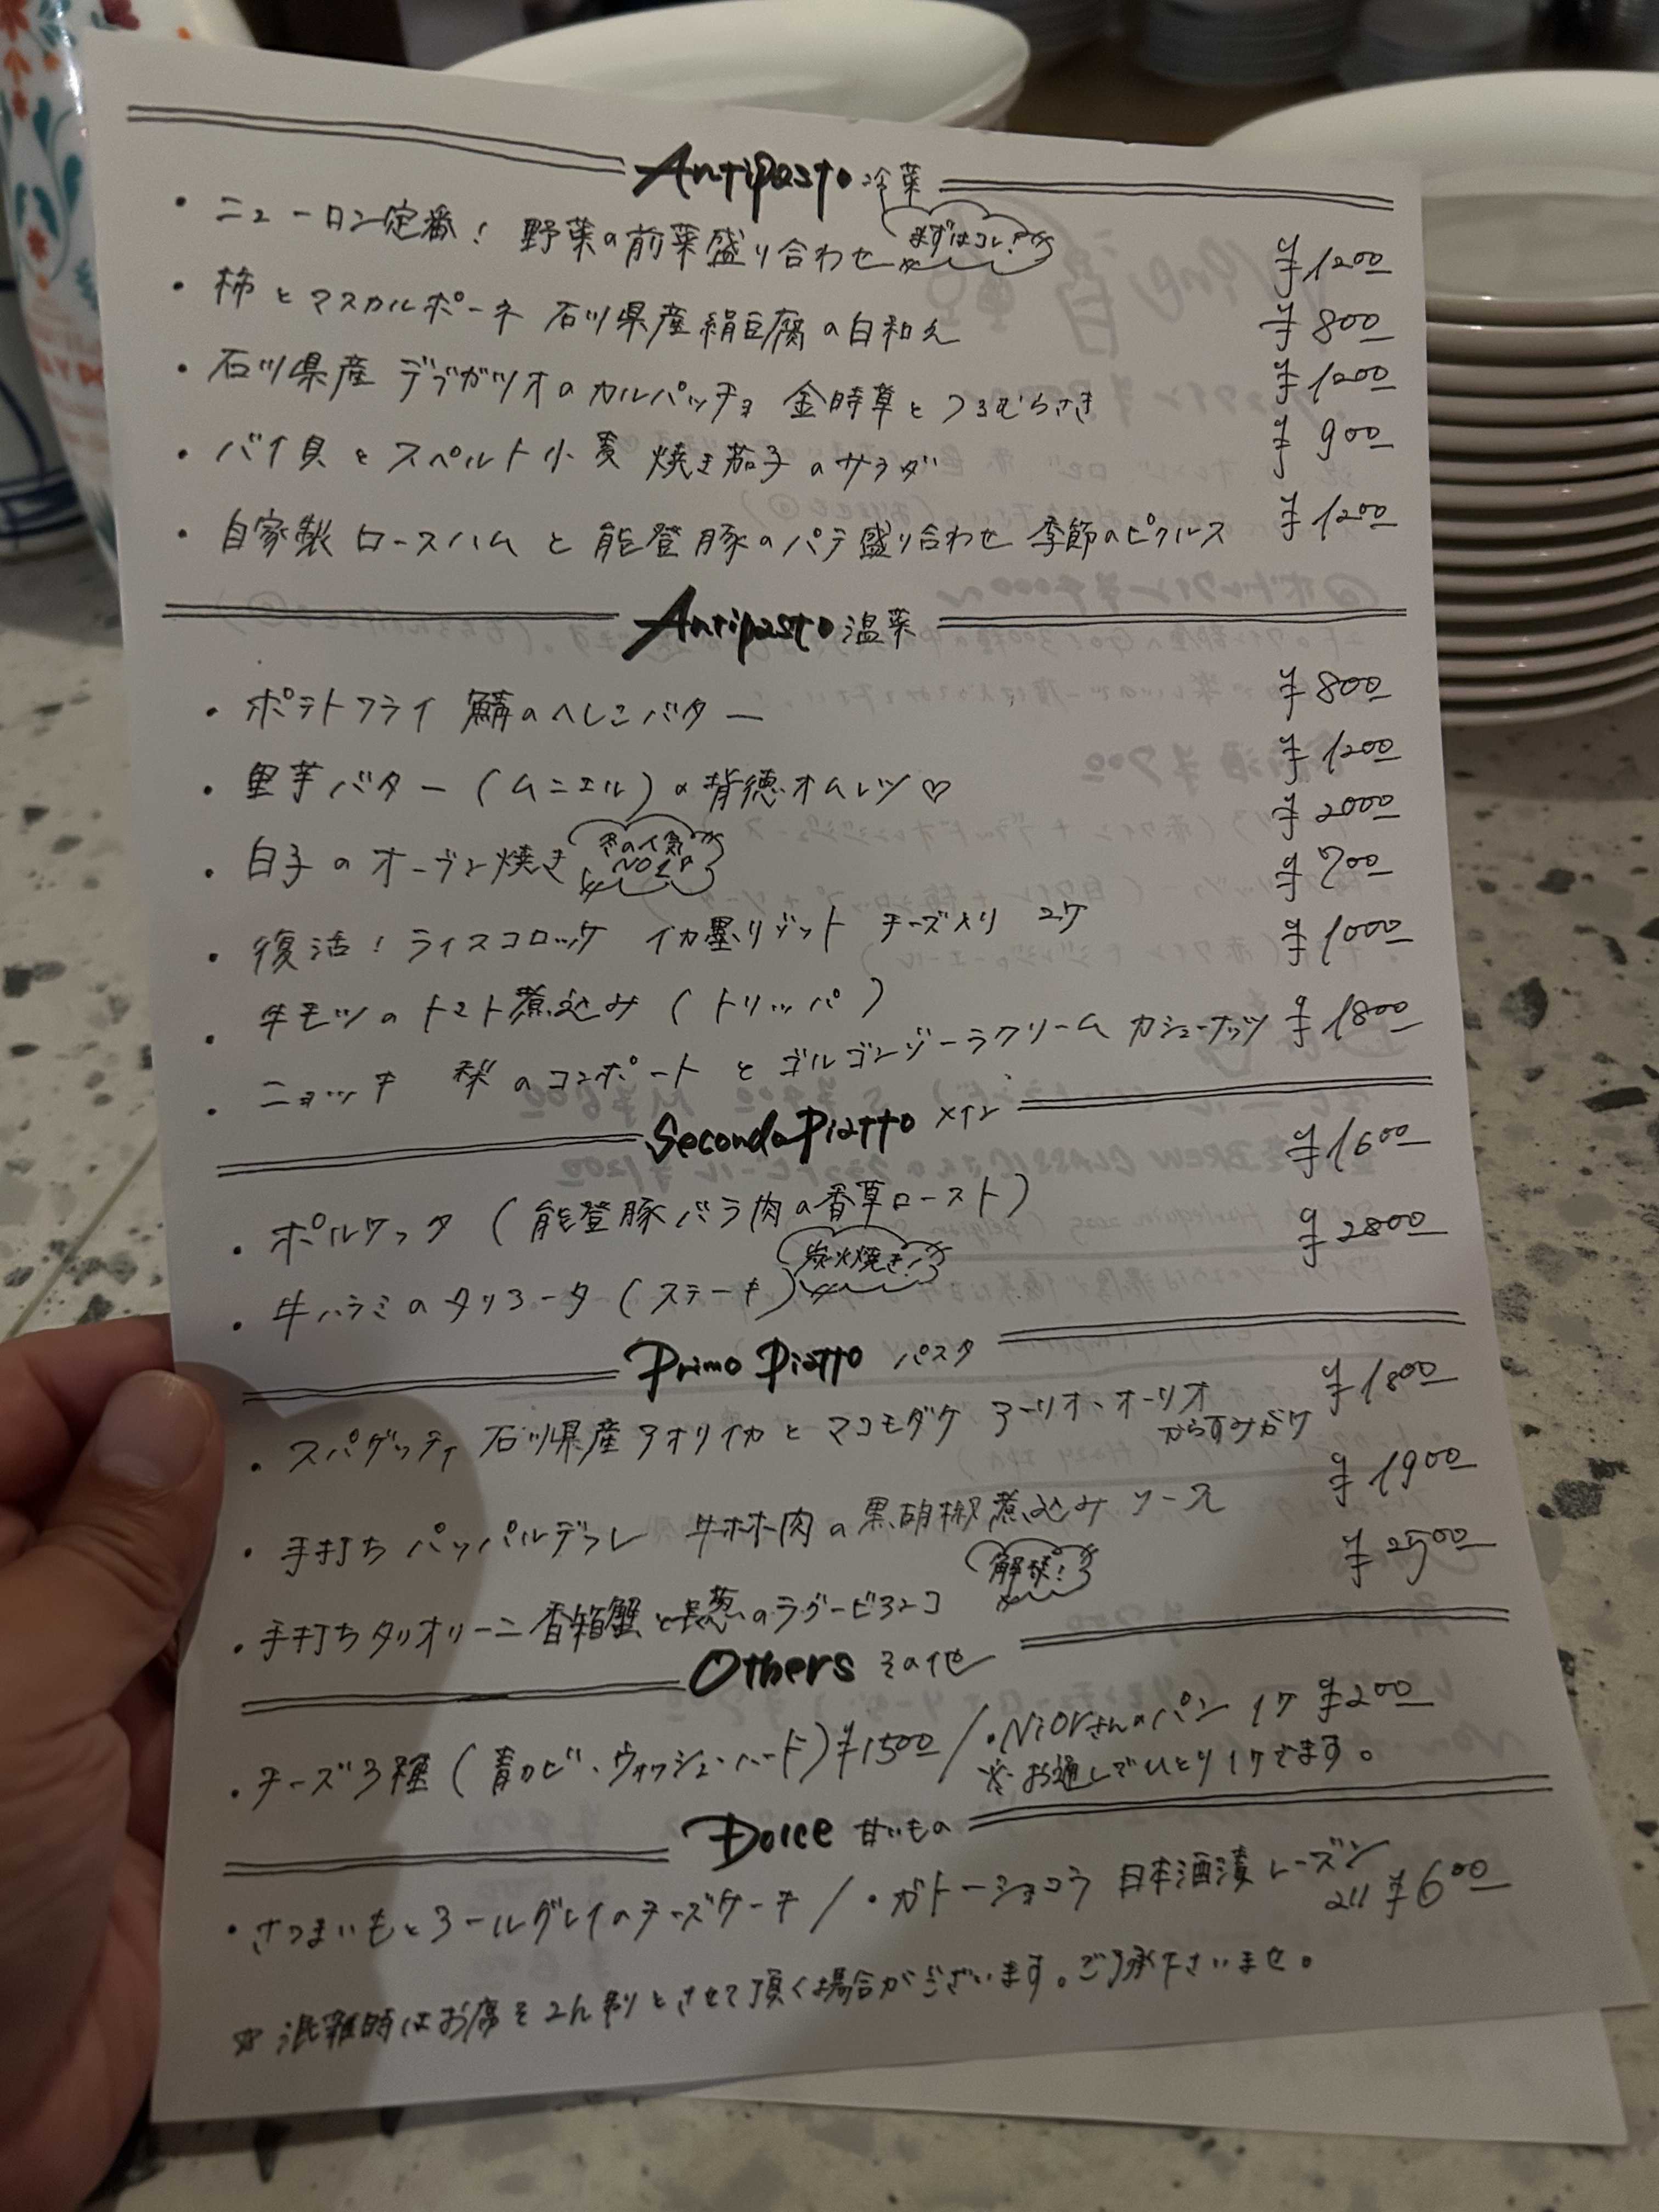 Antipasto 冷菜
・ニューロン定番! 野菜の前菜盛り合わせ まずはコレ! ¥1200
・柿とマスカルポーネ 石川県産絹豆腐の白和え ¥800
・石川県産 デブガツオのカルパッチョ 金時草とつるむらさき ¥1200
・バイ貝とスペルト小麦 焼き茄子のサラダ ¥900
・自家製 ロースハムと能登豚のパテ盛り合わせ 季節のピクルス ¥1200
Antipasto 温菜
・ポテトフライ 鯖のへしこバター ¥800
・里芋バター(ムニエル)の背徳オムレツ♡ ¥1200
・白子のオーブン焼き 冬の人気NO1!! ¥2000
・復活! ライスコロッケ イカ墨リゾット チーズ入り 2ケ ¥700
・牛モツのトマト煮込み(トリッパ) ¥1000
・ニョッキ 梨のコンポートとゴルゴンゾーラクリーム カシューナッツ ¥1800
Secondo Piatto メイン
・ポルケッタ(能登豚バラ肉の香草ロースト) ¥1600
・牛ハラミのタリアータ(ステーキ) 炭火焼き! ¥2800
Primo Piatto パスタ
・スパゲッティ 石川県産アオリイカとマコモダケ アーリオ・オーリオ ¥1800
からすみがけ
・手打ちパッパルデッレ 牛ホホ肉の黒胡椒煮込みソース ¥1900
・手打ちタリオリーニ 香箱蟹と長葱のラグービアンコ 解禁! ¥2500
Others その他
・チーズ3種(青カビ・ウォッシュ・ハード) ¥1500 / ・Niörさんのパン 1ケ ¥200
※お通しでひとり1ケでます。
Dolce 甘いもの
・さつまいもとアールグレイのチーズケーキ / ・ガトーショコラ 日本酒漬レーズン
all ¥600
☆混雑時はお席を2h制とさせて頂く場合がございます。ご了承下さいませ。